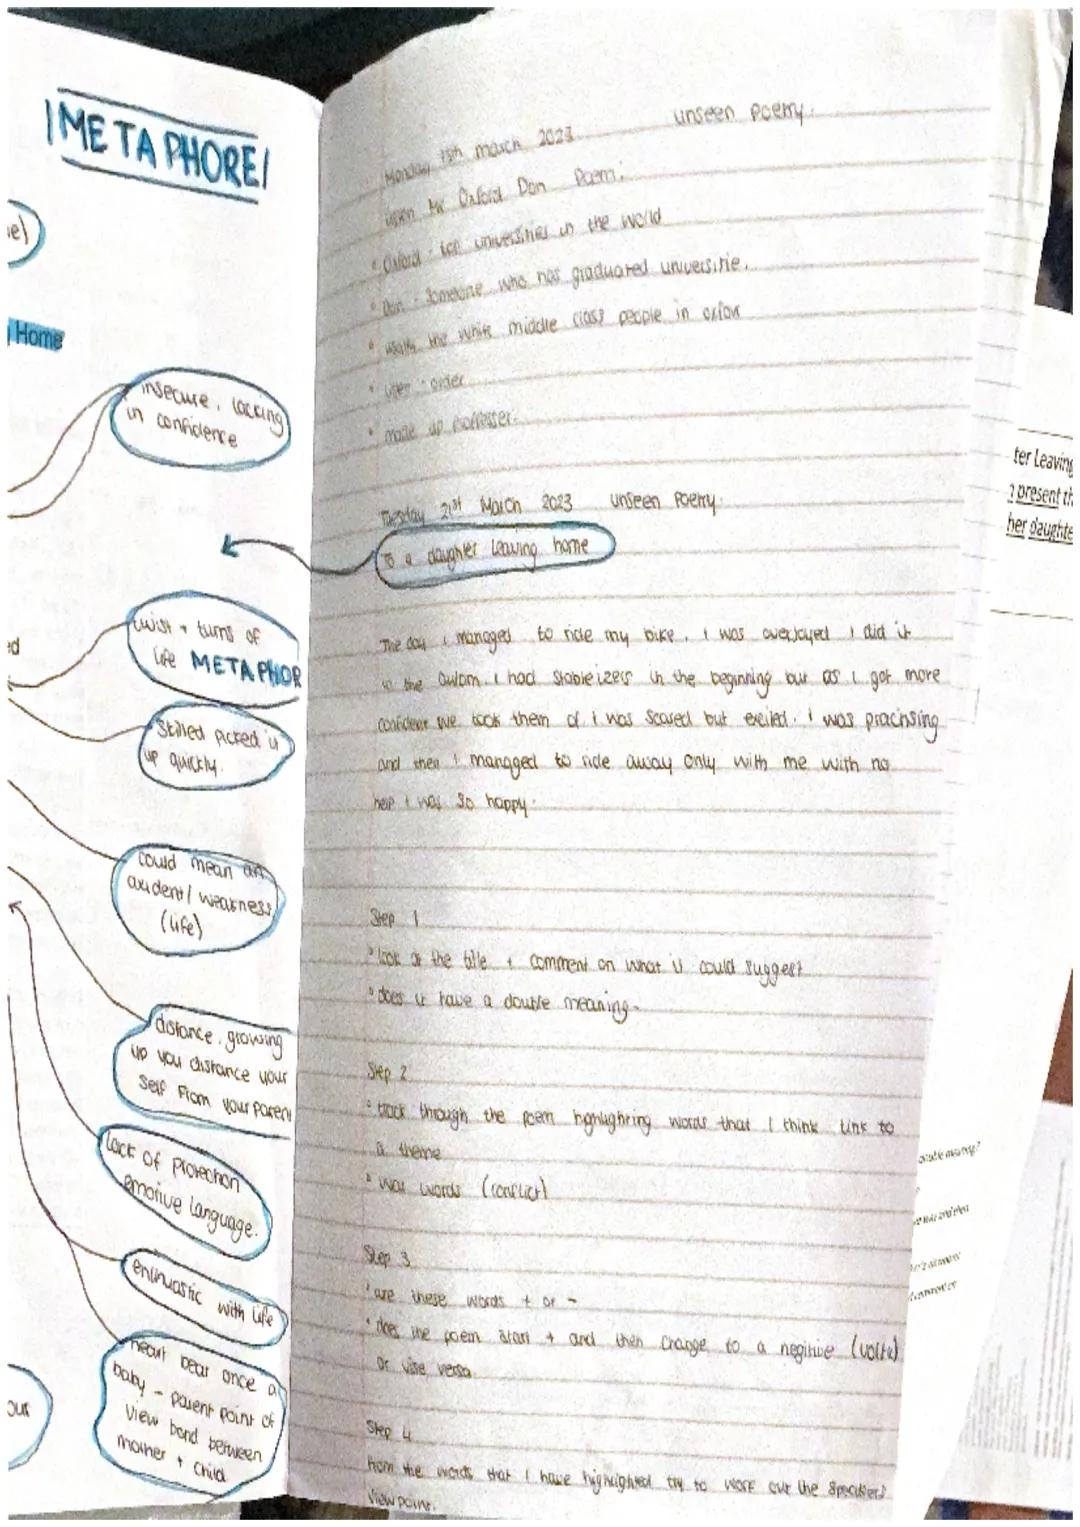 METAPHORE
e)
Home
insecure, lacking
in confidence
ed
twist + turns of
life METAPHOR
Skilled picked it
up quickly.
could mean an
axident / weakness
(life)
distance, growing
up you distance your
self from your parent
lack of protection
emotive language.
enthuastic with life
heart beat once a
baby - parent point of
view bond between
mother + child
our
unseen poetry.
Monday 15th march 2023
Mr Oxford Don Poem.
• Oxford - top universities in the world
• Don - Someone who has graduated universitie.
• the white middle class people in oxfour
• uses order
• made up proffesser.
Tuesday 21st March 2023 unseen Poetry.
to a daughter leaving home
The day i managed to ride my bike, i was overjoyed i did it
in the autom i had Stableizers in the beginning but as i got more
confident we took them of i was scared but exciled. i was practising
and then i managed to ride away only with me with no
help i was so happy.
Step 1
• look at the title + comment on what it could suggest
• does it have a double meaning.
Step 2
• track through the poem highlighting words that I think link to
a theme
• war words (conflict)
Step 3
• are these words + or -
• does the poem start + and then change to a negitive (volta)
or vise versa.
Step 4
from the words that I have highlighted try to work out the speakers
viewpoint.
ter Leaving
present th
her daughte
ouble meaning?